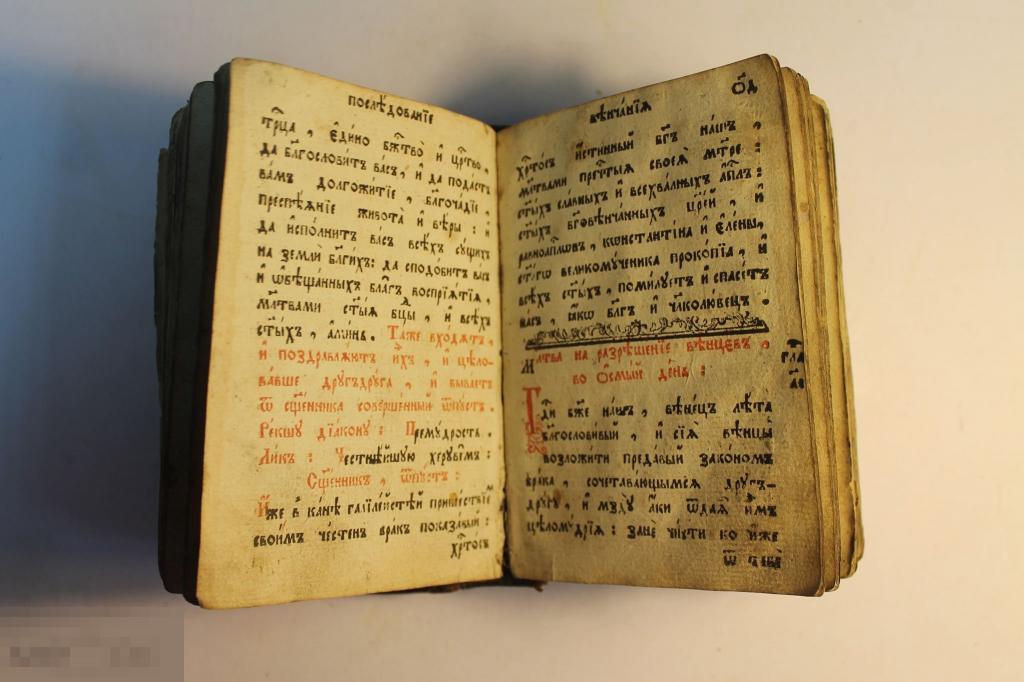 послѣдованїе
трⷪ҇ца , є҆ди́но бж҃тво̀ и҆ црⷭ҇тво ,
да блгⷭ҇ови́тъ ва́съ , и҆ да пода́стъ
ва́мъ долгожи́тїе , блгоча́дїе ,
преспѣ́янїе живота̀ и҆ вѣ́ры : и҆
да и҆спо́лнитъ ва́съ всѣ́хъ сꙋ́щихъ
на землѝ бл҃ги́хъ : да сподо́битъ ва́съ
и҆ ѡ҆бѣ́щанныхъ бла́гъ воспрїѧ́тїѧ ,
мл҃твами ст҃ы́ѧ бцⷣы , и҆ всѣ́хъ
ст҃ы́хъ , а҆ми́нь . Та́же вхо́дѧтъ ,
и҆ поздравлѧ́ютъ и҆̀хъ , и҆ цѣло-
ва́вше дрꙋ́гъдрꙋ́га , и҆ быва́етъ
ѿ сщ҃е́нника соверше́нный ѿпꙋ́стъ .
Ре́кшꙋ дїа́конꙋ : Премꙋ́дрость .
Ли́къ : Честнѣ́йшꙋю херꙋви̑мъ :
Сщ҃е́нникъ , ѿпꙋ́стъ :
И҆́же в ка́нѣ галїле́йстѣй прише́ствїемъ
свои́мъ че́стенъ бра́къ показа́вый :
хрⷭ҇то́съ
вѣнча́нїѧ
о҃д
хрⷭ҇то́съ и҆́стинный бг҃ъ на́шъ ,
мл҃твами пречⷭ҇тыѧ своеѧ̀ мт҃ре :
ст҃ы́хъ сла́вныхъ и҆ всехва́лныхъ а҆пⷭ҇лъ :
ст҃ы́хъ бг҃овѣнча́нныхъ цр҃е́й , и҆
равноапⷭ҇лѡвъ , кѡнстанті́на и҆ є҆ле́ны ,
ст҃а́гѡ великомꙋ́ченика проко́пїа , и҆
всѣ́хъ ст҃ы́хъ , поми́лꙋетъ и҆ спасе́тъ
ва́съ , ꙗ҆́кѡ бл҃гъ и҆ чл҃колю́бецъ .
Мл҃тва на разрѣше́нїе вѣнцє́въ ,
во ѻ҆смы́й де́нь :
Гдⷭ҇и бж҃е на́шъ , вѣне́цъ лѣ́та
благослови́вый , и҆ сїѧ̑ вѣнцы̀
возложи́ти преда́вый зако́номъ
бра́ка , сочета́вающымсѧ дрꙋ́гъ-
дрꙋ́гꙋ , и҆ мздꙋ̀ а҆́ки ѿдаѧ̀ и҆̀мъ
цѣломꙋ́дрїѧ : занѐ чи́сти во и҆́же
ѿ тебє̀
гла